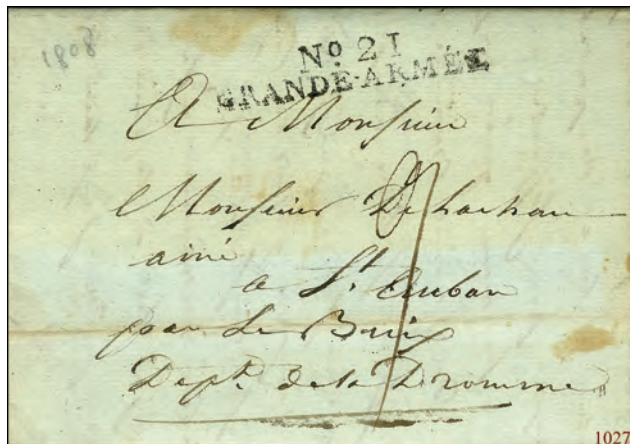 1808
Nº 21
GRANDE-ARMÉE
A Monsieur
Monsieur
ainé
a St. Auban
par Le Buis
Dept. de la Dromme
1027